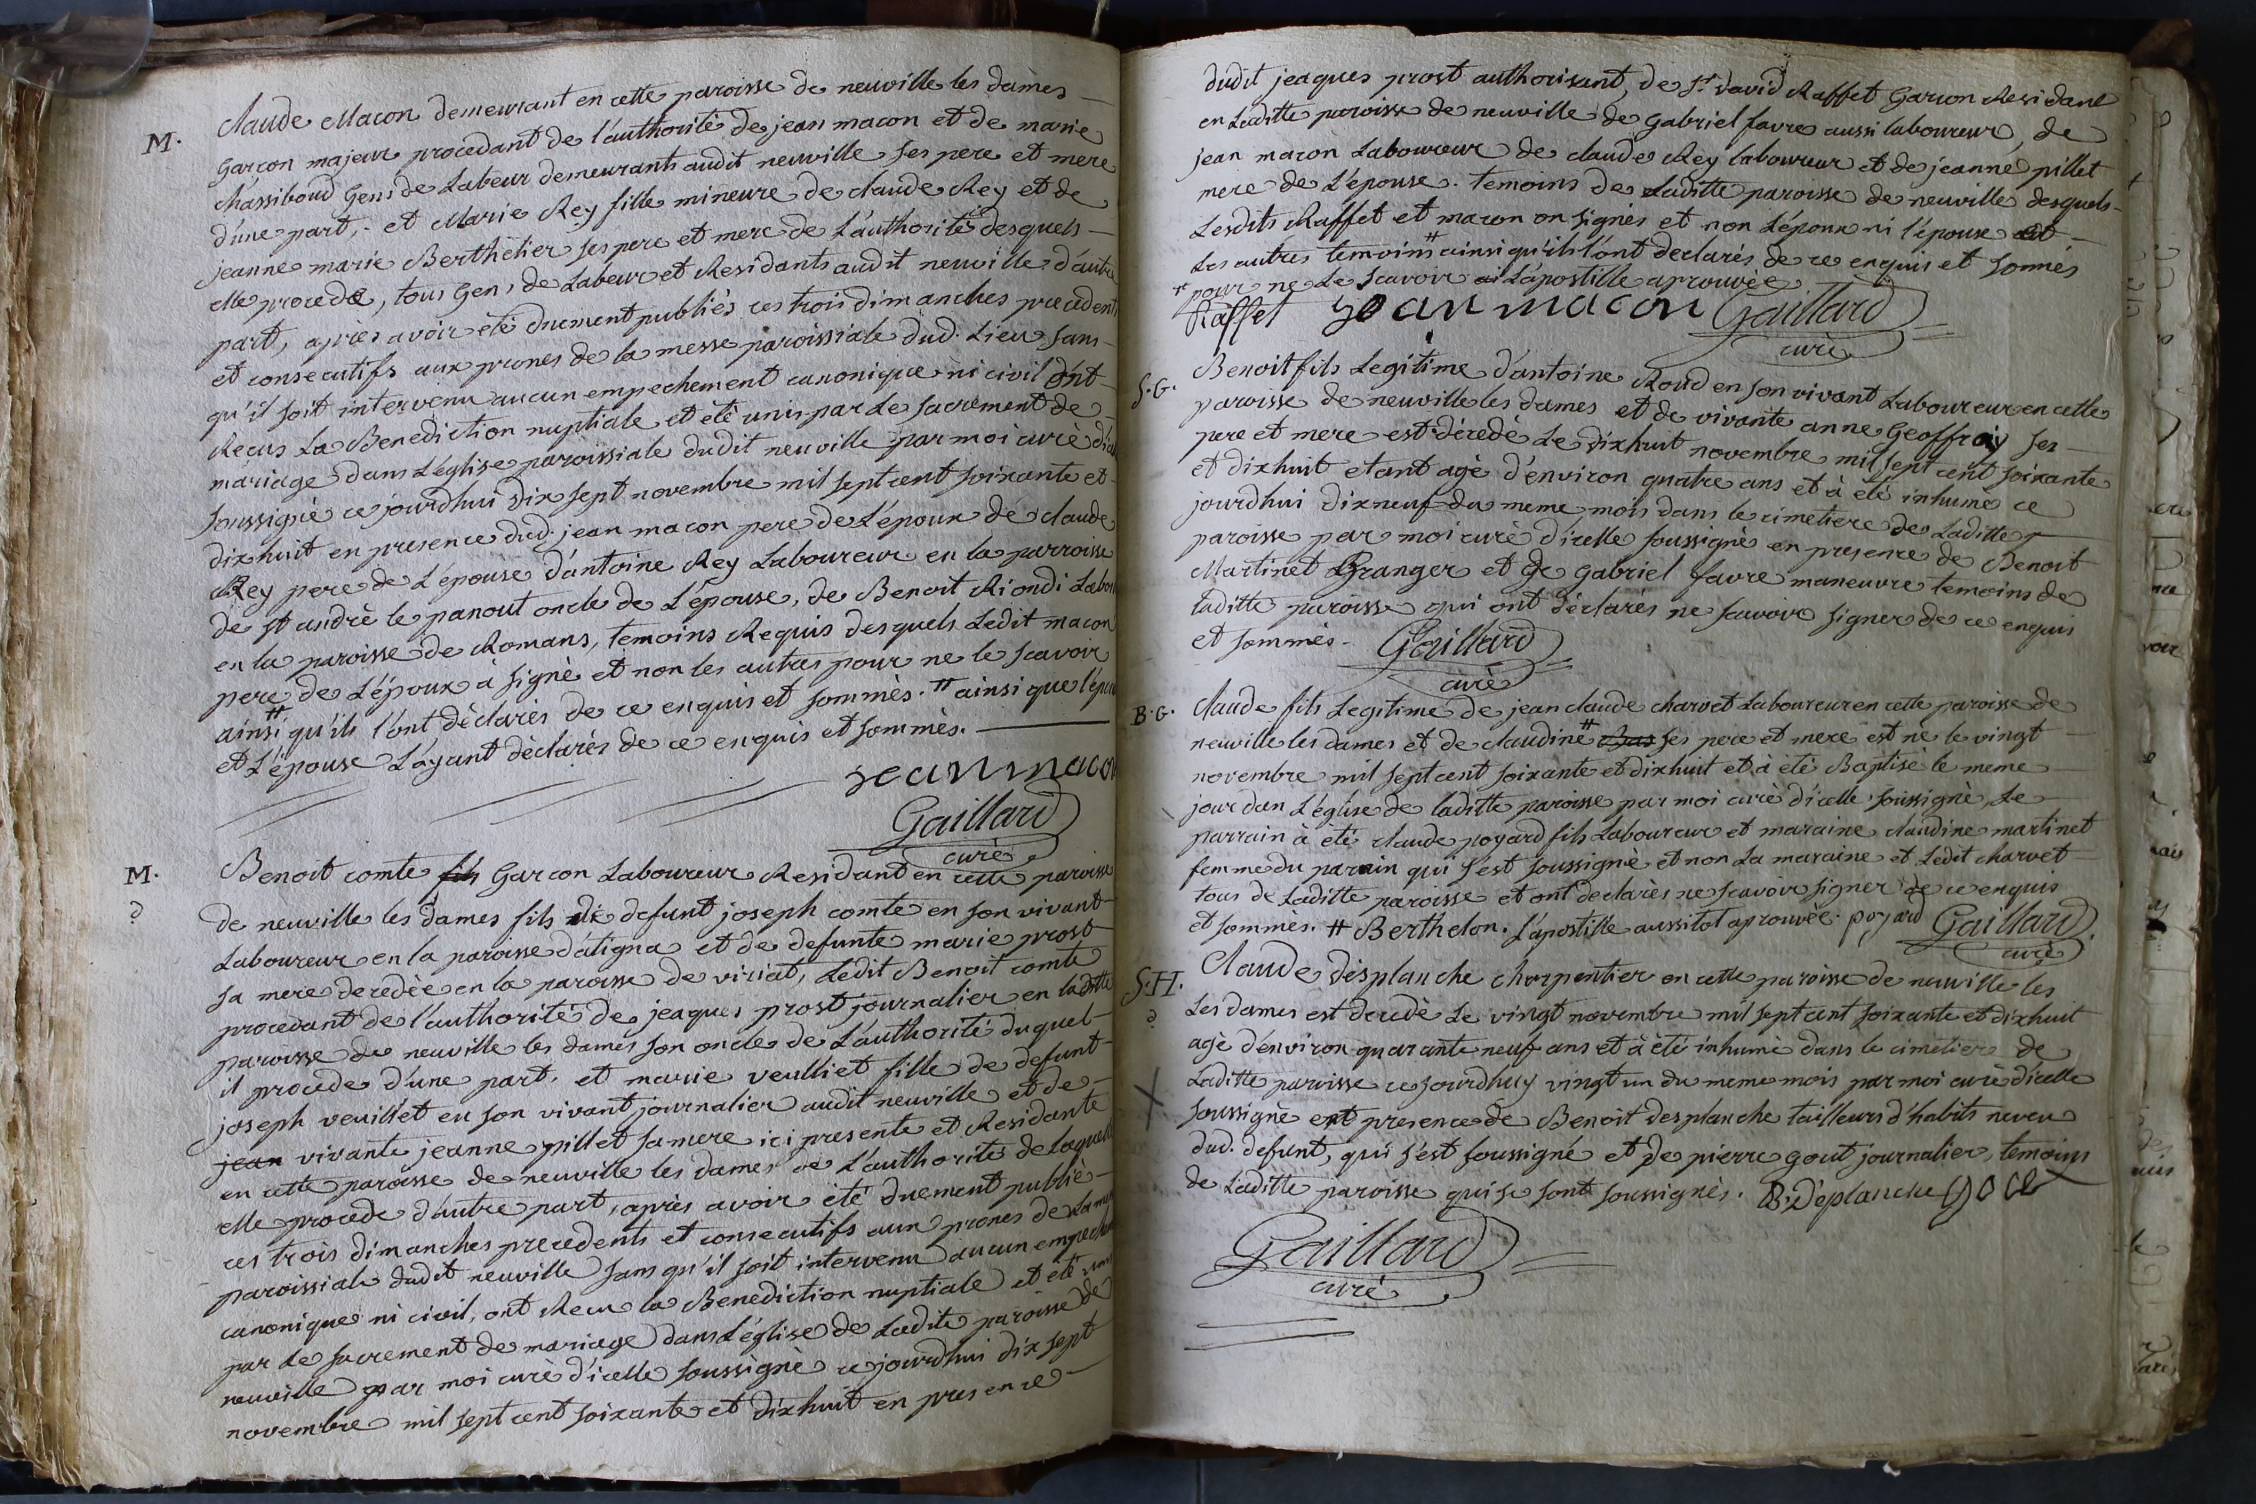 M.
Claude Macon demeurant en cette paroisse de neuville les dames
Garcon majeur procedant de l'authorité de jean macon et de marie
Chassiboud Gens de Labeur demeurants audit neuville ses pere et mere
d'une part, et Marie Rey fille mineure de claude Rey et de
jeanne marie Berthelier ses pere et mere de L'authorité desquels
elle procede, tous Gens de Labeur et Residants audit neuville d'autre
part, après avoir été duement publiés ces trois dimanches precedents
et consecutifs aux prones de la messe paroissiale dud. Lieu sans
qu'il soit intervenu aucun empechement canonique ni civil ont
Recus La Benediction nuptiale et été unis par Le sacrement de
mariage dans L'église paroissiale dudit neuville par moi curé
soussigné ce jourdhui dix sept novembre mil sept cent soixante et
dixhuit en presence dud. jean macon pere de L'époux de claude
Rey pere de L'épouse d'antoine Rey Laboureur en la parroisse
de st andré le panout oncle de L'épouse, de Benoit Riondi
en la paroisse de Romans, temoins Requis desquels Ledit macon
pere de L'époux à signé et non les autres pour ne le scavoir
ainsi # qu'ils l'ont déclarés de ce enquis et sommés. # ainsi que l'époux
et L'épouse L'ayant déclarés de ce enquis et sommés.
jean macon
Gaillard
curé
M.
Benoit comte fils Garcon Laboureur Residant en cette paroisse
de neuville les dames fils de defunt joseph comte en son vivant
Laboureur en la paroisse d'atigna et de defunte marie prost
sa mere decedée en la paroisse de viriat, Ledit Benoit comte
procedant de l'authorité de jeaques prost journalier en laditte
paroisse de neuville les dames son oncle de L'authorité duquel
il procede d'une part, et marie veulliet fille de defunt
joseph veuillet en son vivant journalier audit neuville et de
jean vivante jeanne pillet sa mere ici presente et Residante
en cette paroisse de neuville les dames de L'authorité de laquelle
elle procede d'autre part, après avoir été duement publié
ces trois dimanches precedents et consecutifs aux prones de La messe
paroissiale dudit neuville sans qu'il soit intervenu aucun empechement
canonique ni civil, ont Recu la Benediction nuptiale et été unis
par Le sacrement de mariage dans L'église de Ladite paroisse de
neuville par moi curé d'icelle soussigné ce jourdhui dix sept
novembre mil sept cent soixante et dixhuit en presence
dudit jeaques prost authorisant, de Sr david Raffet Garcon Residant
en Laditte paroisse de neuville de Gabriel favre aussi laboureur, de
jean macon Laboureur de claude Rey laboureur et de jeanne pillet
mere de L'épouse. temoins de Laditte paroisse de neuville desquels
Lesdits Raffet et macon on signés et non L'époux ni l'épouse et
Les autres temoins # ainsi qu'ils l'ont declarés de ce enquis et sommés
# pour ne Le scavoir L'apostille aprouvée
Raffet jean macon Gaillard
curé
S.G.
Benoit fils Legitime d'antoine Roud en son vivant Laboureur en cette
paroisse de neuville les dames et de vivante anne Geoffray ses
pere et mere est decedé Le dixhuit novembre mil sept cent soixante
et dixhuit etant agé d'environ quatre ans et à été inhumé ce
jourdhui dixneuf du meme mois dans le cimetiere de Laditte
paroisse par moi curé d'icelle soussigné en presence de Benoit
Martinet Granger et de Gabriel favre maneuvre temoins de
laditte paroisse qui ont déclarés ne scavoir signer de ce enquis
et sommés. Gaillard
curé
B.G.
Claude fils Legitime de jean claude charvet Laboureur en cette paroisse de
neuville les dames et de claudine # Bas ses pere et mere est né le vingt
novembre mil sept cent soixante et dixhuit et à été Baptisé le meme
jour dan L'église de laditte paroisse par moi curé d'icelle soussigné, Le
parrain à été claude poyard fils Laboureur et maraine claudine martinet
femme du parrain qui s'est soussigné et non La maraine et Ledit charvet
tous de Laditte paroisse et ont declarés ne scavoir signer de ce enquis
et sommés. # Berthelon. L'apostille aussitot aprouvée. poyard Gaillard
curé
S.H.
Claude desplanche charpentier en cette paroisse de neuville les
Les dames est decedé Le vingt novembre mil sept cent soixante et dixhuit
agé d'environ quarante neuf ans et à été inhumé dans le cimetiere de
Laditte paroisse ce jourdhuy vingt un du meme mois par moi curé d'icelle
soussigné en presence de Benoit desplanche tailleurs d'habits neveu
dud. defunt, qui s'est soussigné et de pierre gout journalier, temoins
de Laditte paroisse qui se sont soussignés. B. Déplanche
Gaillard
curé